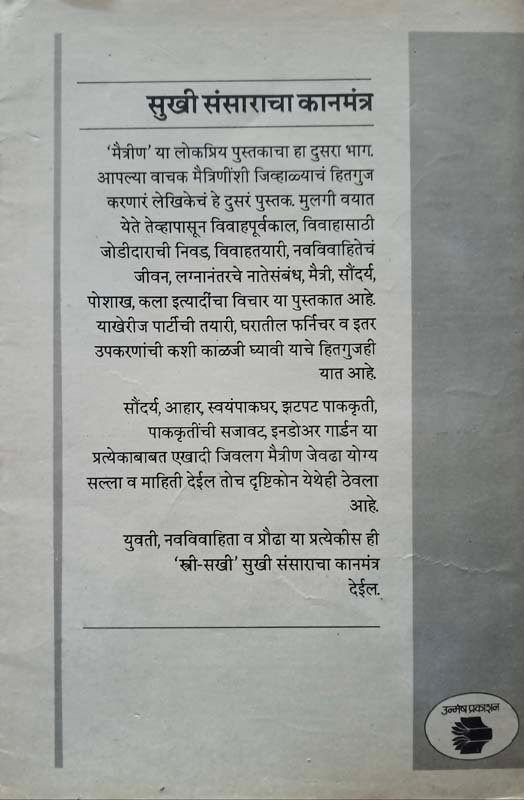 सुखी संसाराचा कानमंत्र
‘मैत्रीण’ या लोकप्रिय पुस्तकाचा हा दुसरा भाग.
आपल्या वाचक मैत्रिणींशी जिव्हाळ्याचं हितगुज
करणारं लेखिकेचं हे दुसरं पुस्तक. मुलगी वयात
येते तेव्हापासून विवाहपूर्वकाल, विवाहासाठी
जोडीदाराची निवड, विवाहतयारी, नवविवाहितेचं
जीवन, लग्नानंतरचे नातेसंबंध, मैत्री, सौंदर्य,
पोशाख, कला इत्यादींचा विचार या पुस्तकात आहे.
याखेरीज पार्टीची तयारी, घरातील फर्निचर व इतर
उपकरणांची कशी काळजी घ्यावी याचे हितगुजही
यात आहे.
सौंदर्य, आहार, स्वयंपाकघर, झटपट पाककृती,
पाककृतींची सजावट, इनडोअर गार्डन या
प्रत्येकाबाबत एखादी जिवलग मैत्रीण जेवढा योग्य
सल्ला व माहिती देईल तोच दृष्टिकोन येथेही ठेवला
आहे.
युवती, नवविवाहिता व प्रौढा या प्रत्येकीस ही
‘स्त्री-सखी’ सुखी संसाराचा कानमंत्र
देईल.
उन्मेष प्रकाशन